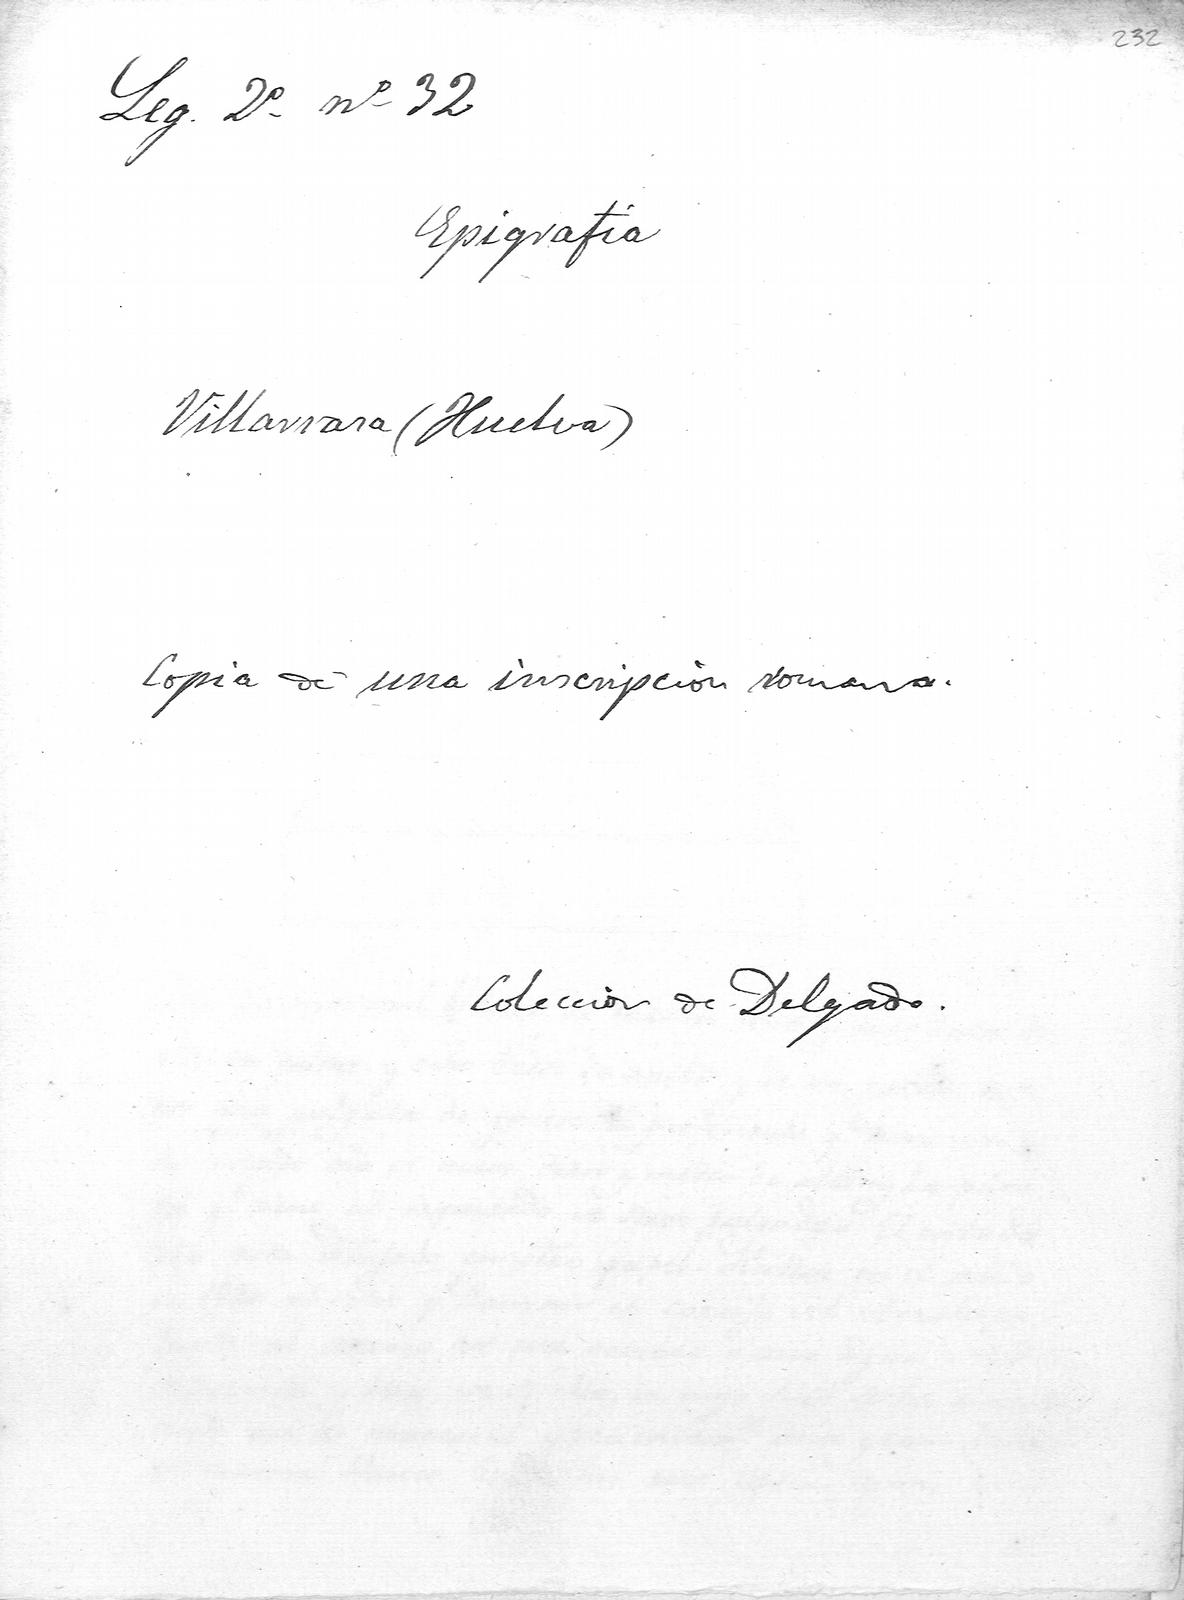 232
Leg. 2º nº 32
Epigrafia
Villarrasa (Huelva)
Copia de una inscripción romana.
Colección de Delgado.